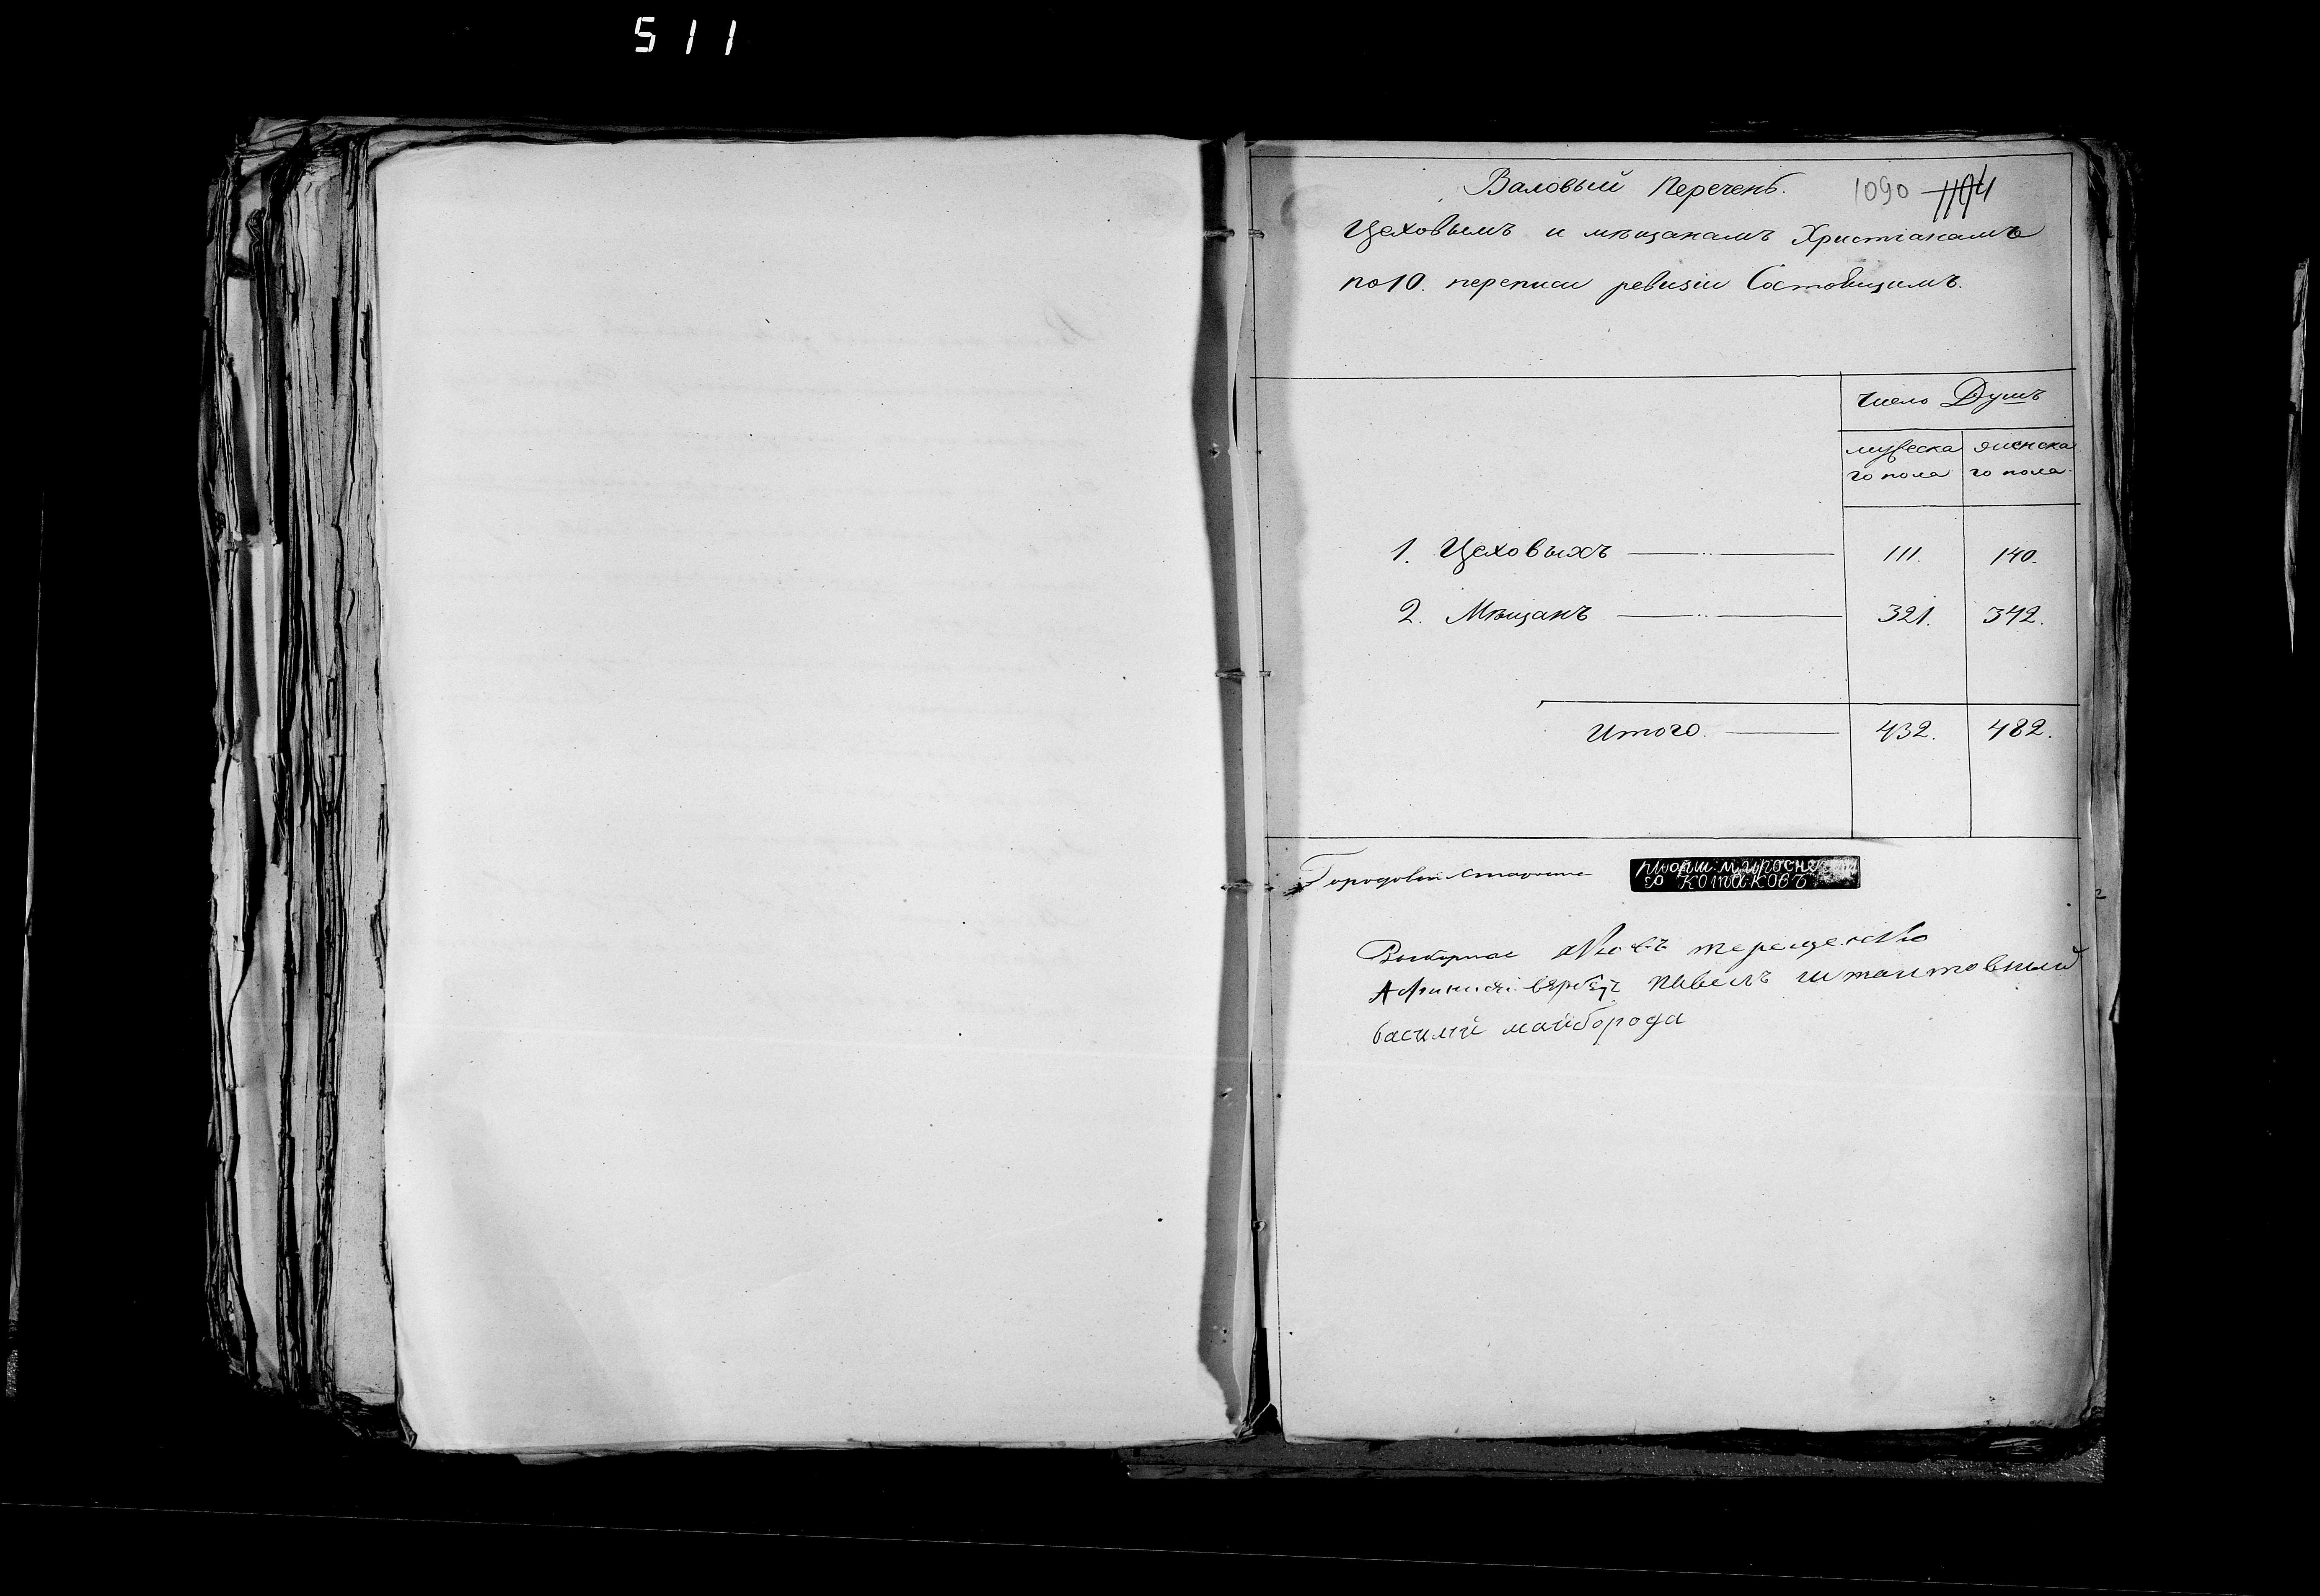 511
Валовый Перечень.
1090 1104
Цеховымъ и мѣщанамъ Христіанамъ
по 10. переписи ревизіи Состоящимъ.
Число Душъ
мужеска женска
го пола го пола
1. Цеховыхъ 111. 140.
2. Мѣщанъ 321. 342.
Итого 432. 482.
Городовой Староста
Выборные
Павелъ
василий майборода